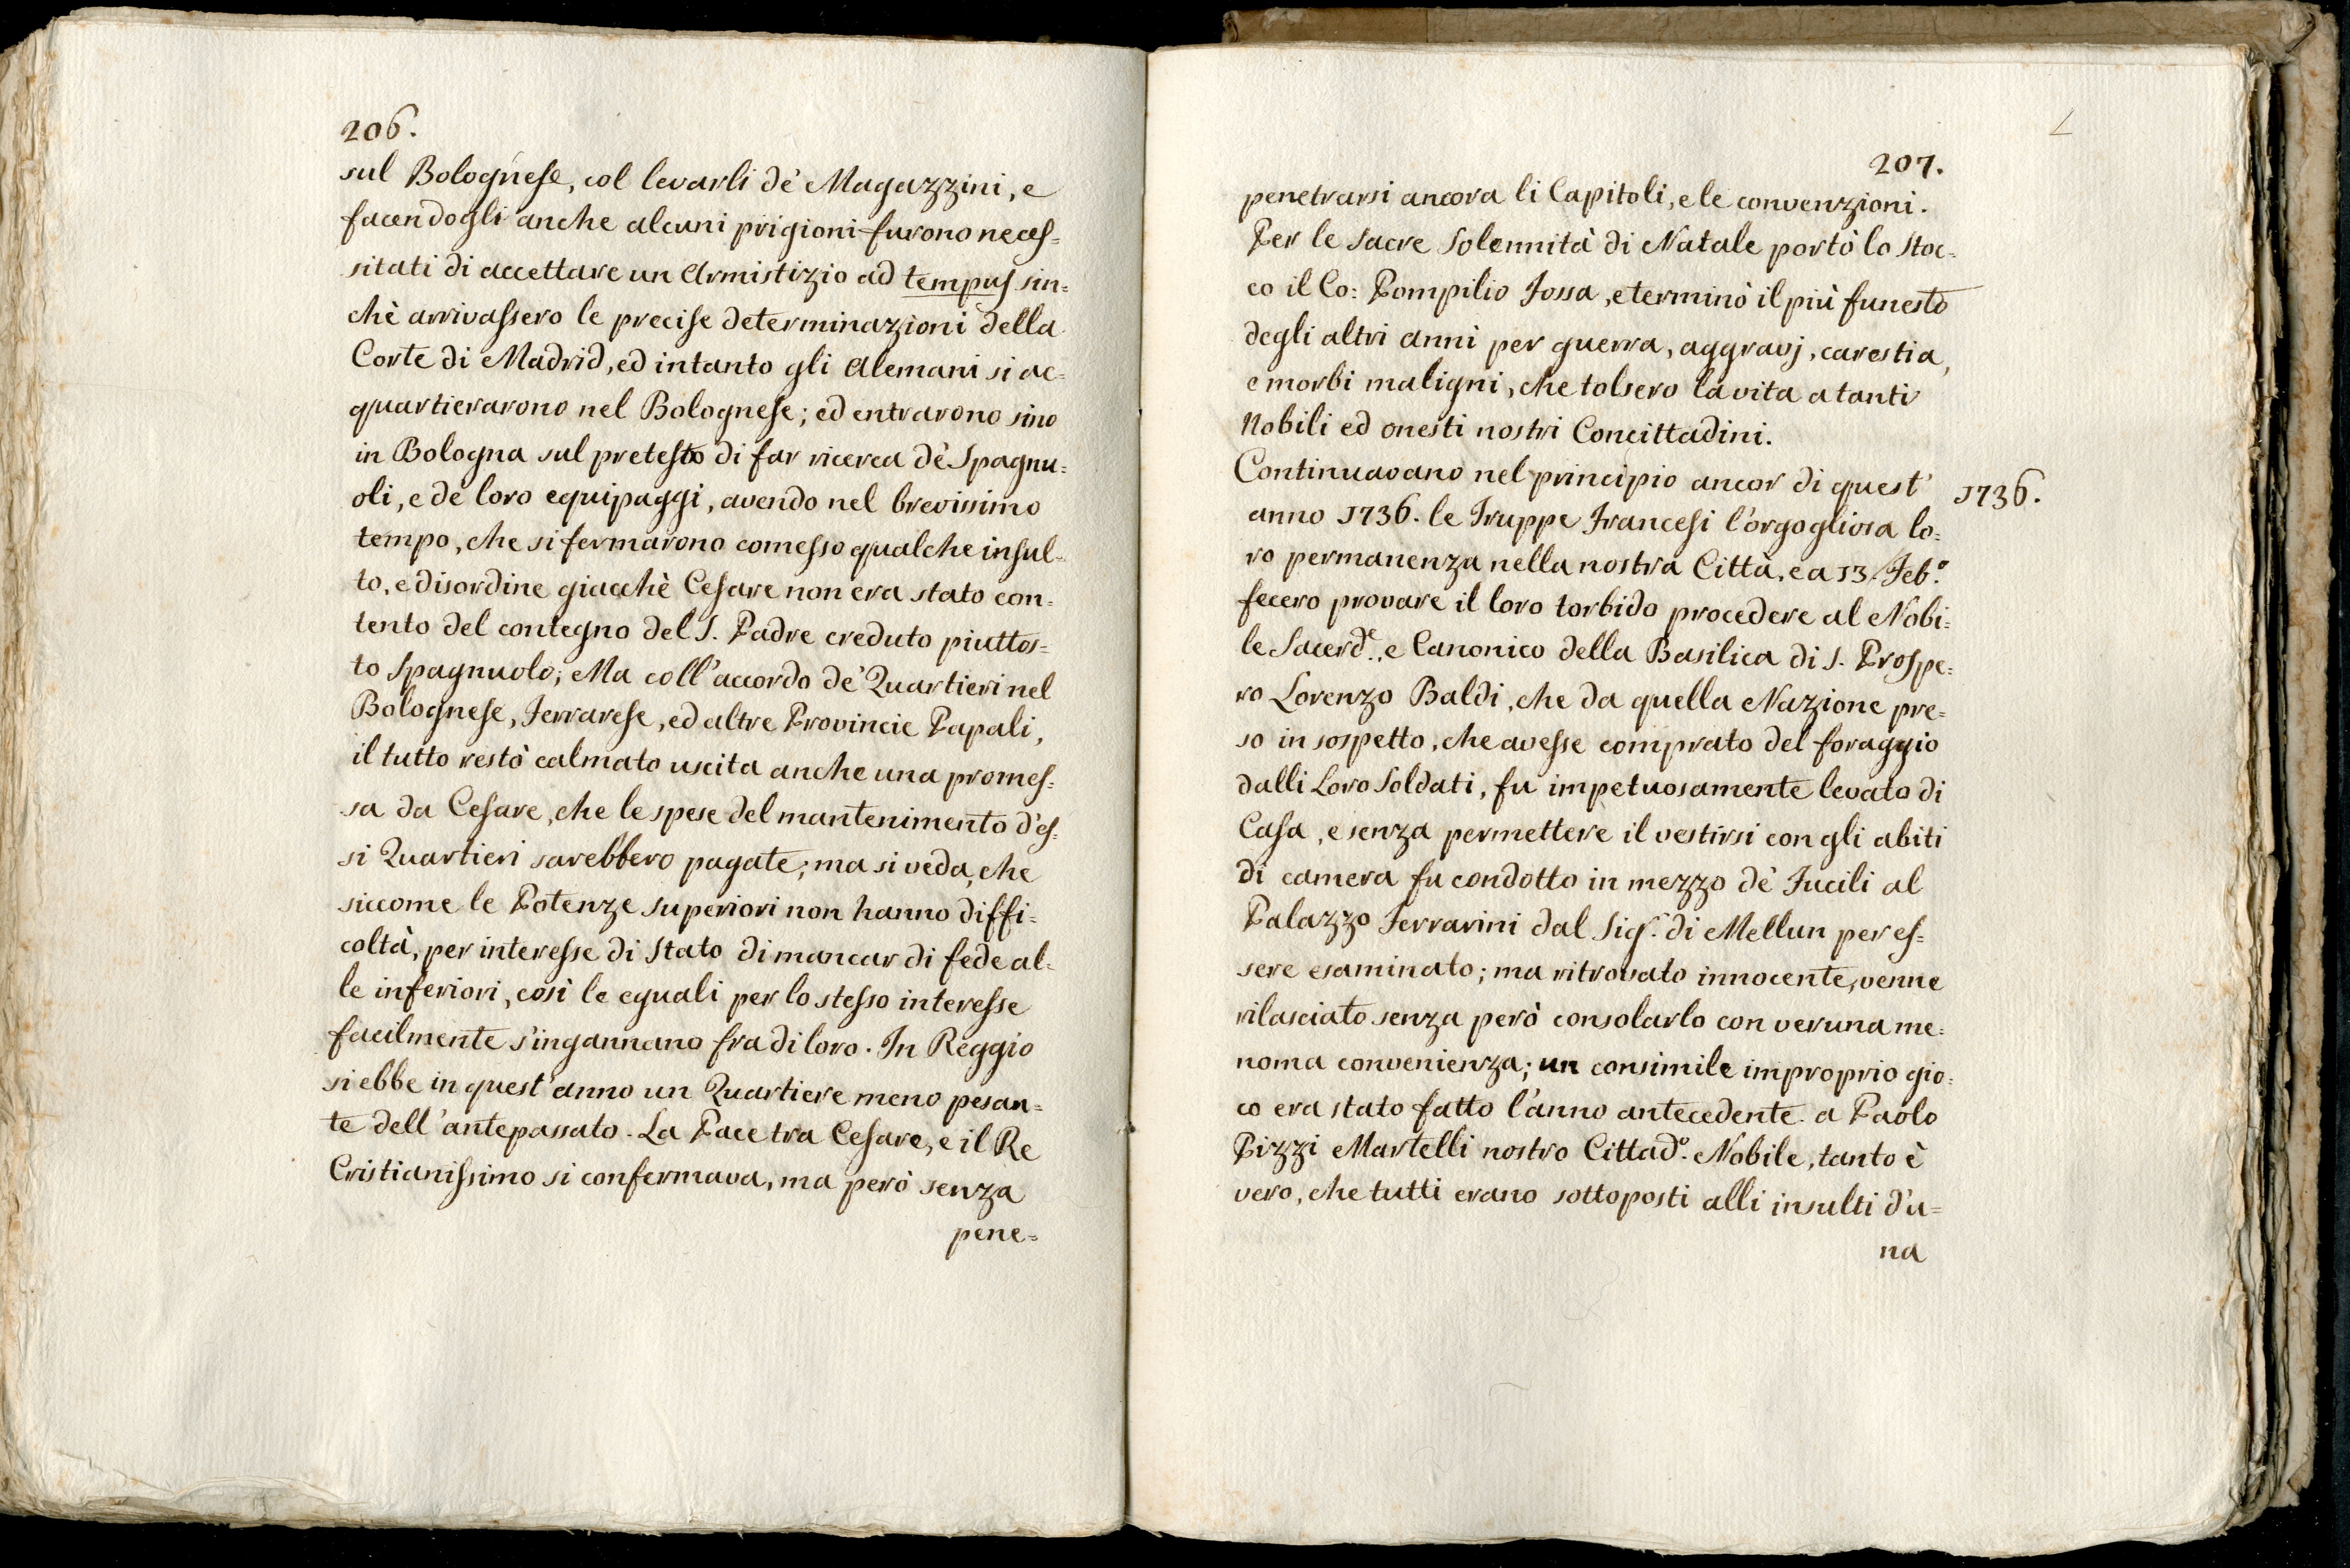 206.
sul Bolognese, col levarli de' Magazzini, e
facendogli anche alcuni prigioni furono neces=
sitati di accettare un Armistizio ad tempus sin=
chè arrivassero le precise determinazioni della
Corte di Madrid, ed intanto gli Alemani si ac=
quartierarono nel Bolognese; ed entrarono sino
in Bologna sul pretesto di far ricerca de' Spagnu=
oli, e de loro equipaggi, avendo nel brevissimo
tempo, che si fermarono comesso qualche insul=
to, e disordine giacchè Cesare non era stato con=
tento del contegno del S. Padre creduto piuttos=
to Spagnuolo; Ma coll'accordo de' Quartieri nel
Bolognese, Ferrarese, ed altre Provincie Papali,
il tutto restò calmato uscita anche una promes=
sa da Cesare, che le spese del mantenimento d'es=
si Quartieri sarebbero pagate; ma si veda, che
siccome le Potenze superiori non hanno diffi=
coltà, per interesse di Stato di mancar di fede al=
le inferiori, così le eguali per lo stesso interesse
facilmente s'ingannano fra di loro. In Reggio
si ebbe in quest'anno un Quartiere meno pesan=
te dell'antepassato. La Pace tra Cesare, e il Re
Cristianissimo si confermava, ma però senza
pene=
207.
penetrarsi ancora li Capitoli, e le convenzioni.
Per le Sacre Solennità di Natale portò lo Stoc=
co il Co: Pompilio Fossa, e terminò il più funesto
degli altri anni per guerra, aggravj, carestia,
e morbi maligni, che tolsero la vita a tanti
Nobili ed onesti nostri Concittadini.
Continuavano nel principio ancor di quest'
1736.
anno 1736. le Truppe Francesi l'orgogliosa lo=
ro permanenza nella nostra Città, e a 13. Feb.º
fecero provare il loro torbido procedere al Nobi=
le Sacerd.e, e Canonico della Basilica di S. Prospe=
ro Lorenzo Baldi, che da quella Nazione pre=
so in sospetto, che avesse comprato del foraggio
dalli Loro Soldati, fu impetuosamente levato di
Casa, e senza permettere il vestirsi con gli abiti
di camera fu condotto in mezzo de' Fucili al
Palazzo Ferrarini dal Sig.r di Mellun per es=
sere esaminato; ma ritrovato innocente, venne
rilasciato senza però consolarlo con veruna me=
noma convenienza; un consimile improprio gio=
co era stato fatto l'anno antecedente. a Paolo
Pizzi Martelli nostro Cittad.º Nobile, tanto è
vero, che tutti erano sottoposti alli insulti d'u=
na